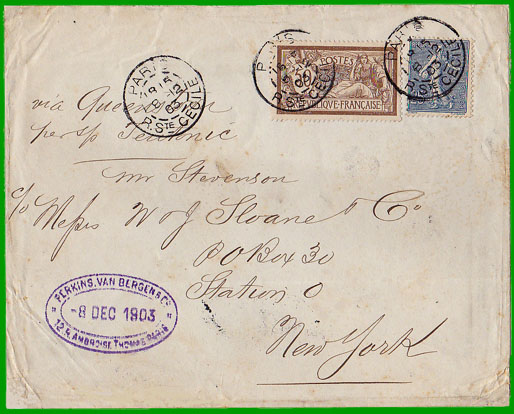 via Queenstown
per S/S Teutonic
Mr Stevenson
c/o Messrs W & J Sloane & Co
P O Box 30
Station O
New York
PARIS
R. STE CECILE
PARIS
R. STE CECILE
PARIS
R. STE CECILE
POSTES
50
REPUBLIQUE FRANÇAISE
PERKINS, VAN BERGEN & Co
-8 DEC 1903
12, R. AMBROISE THOMAS PARIS